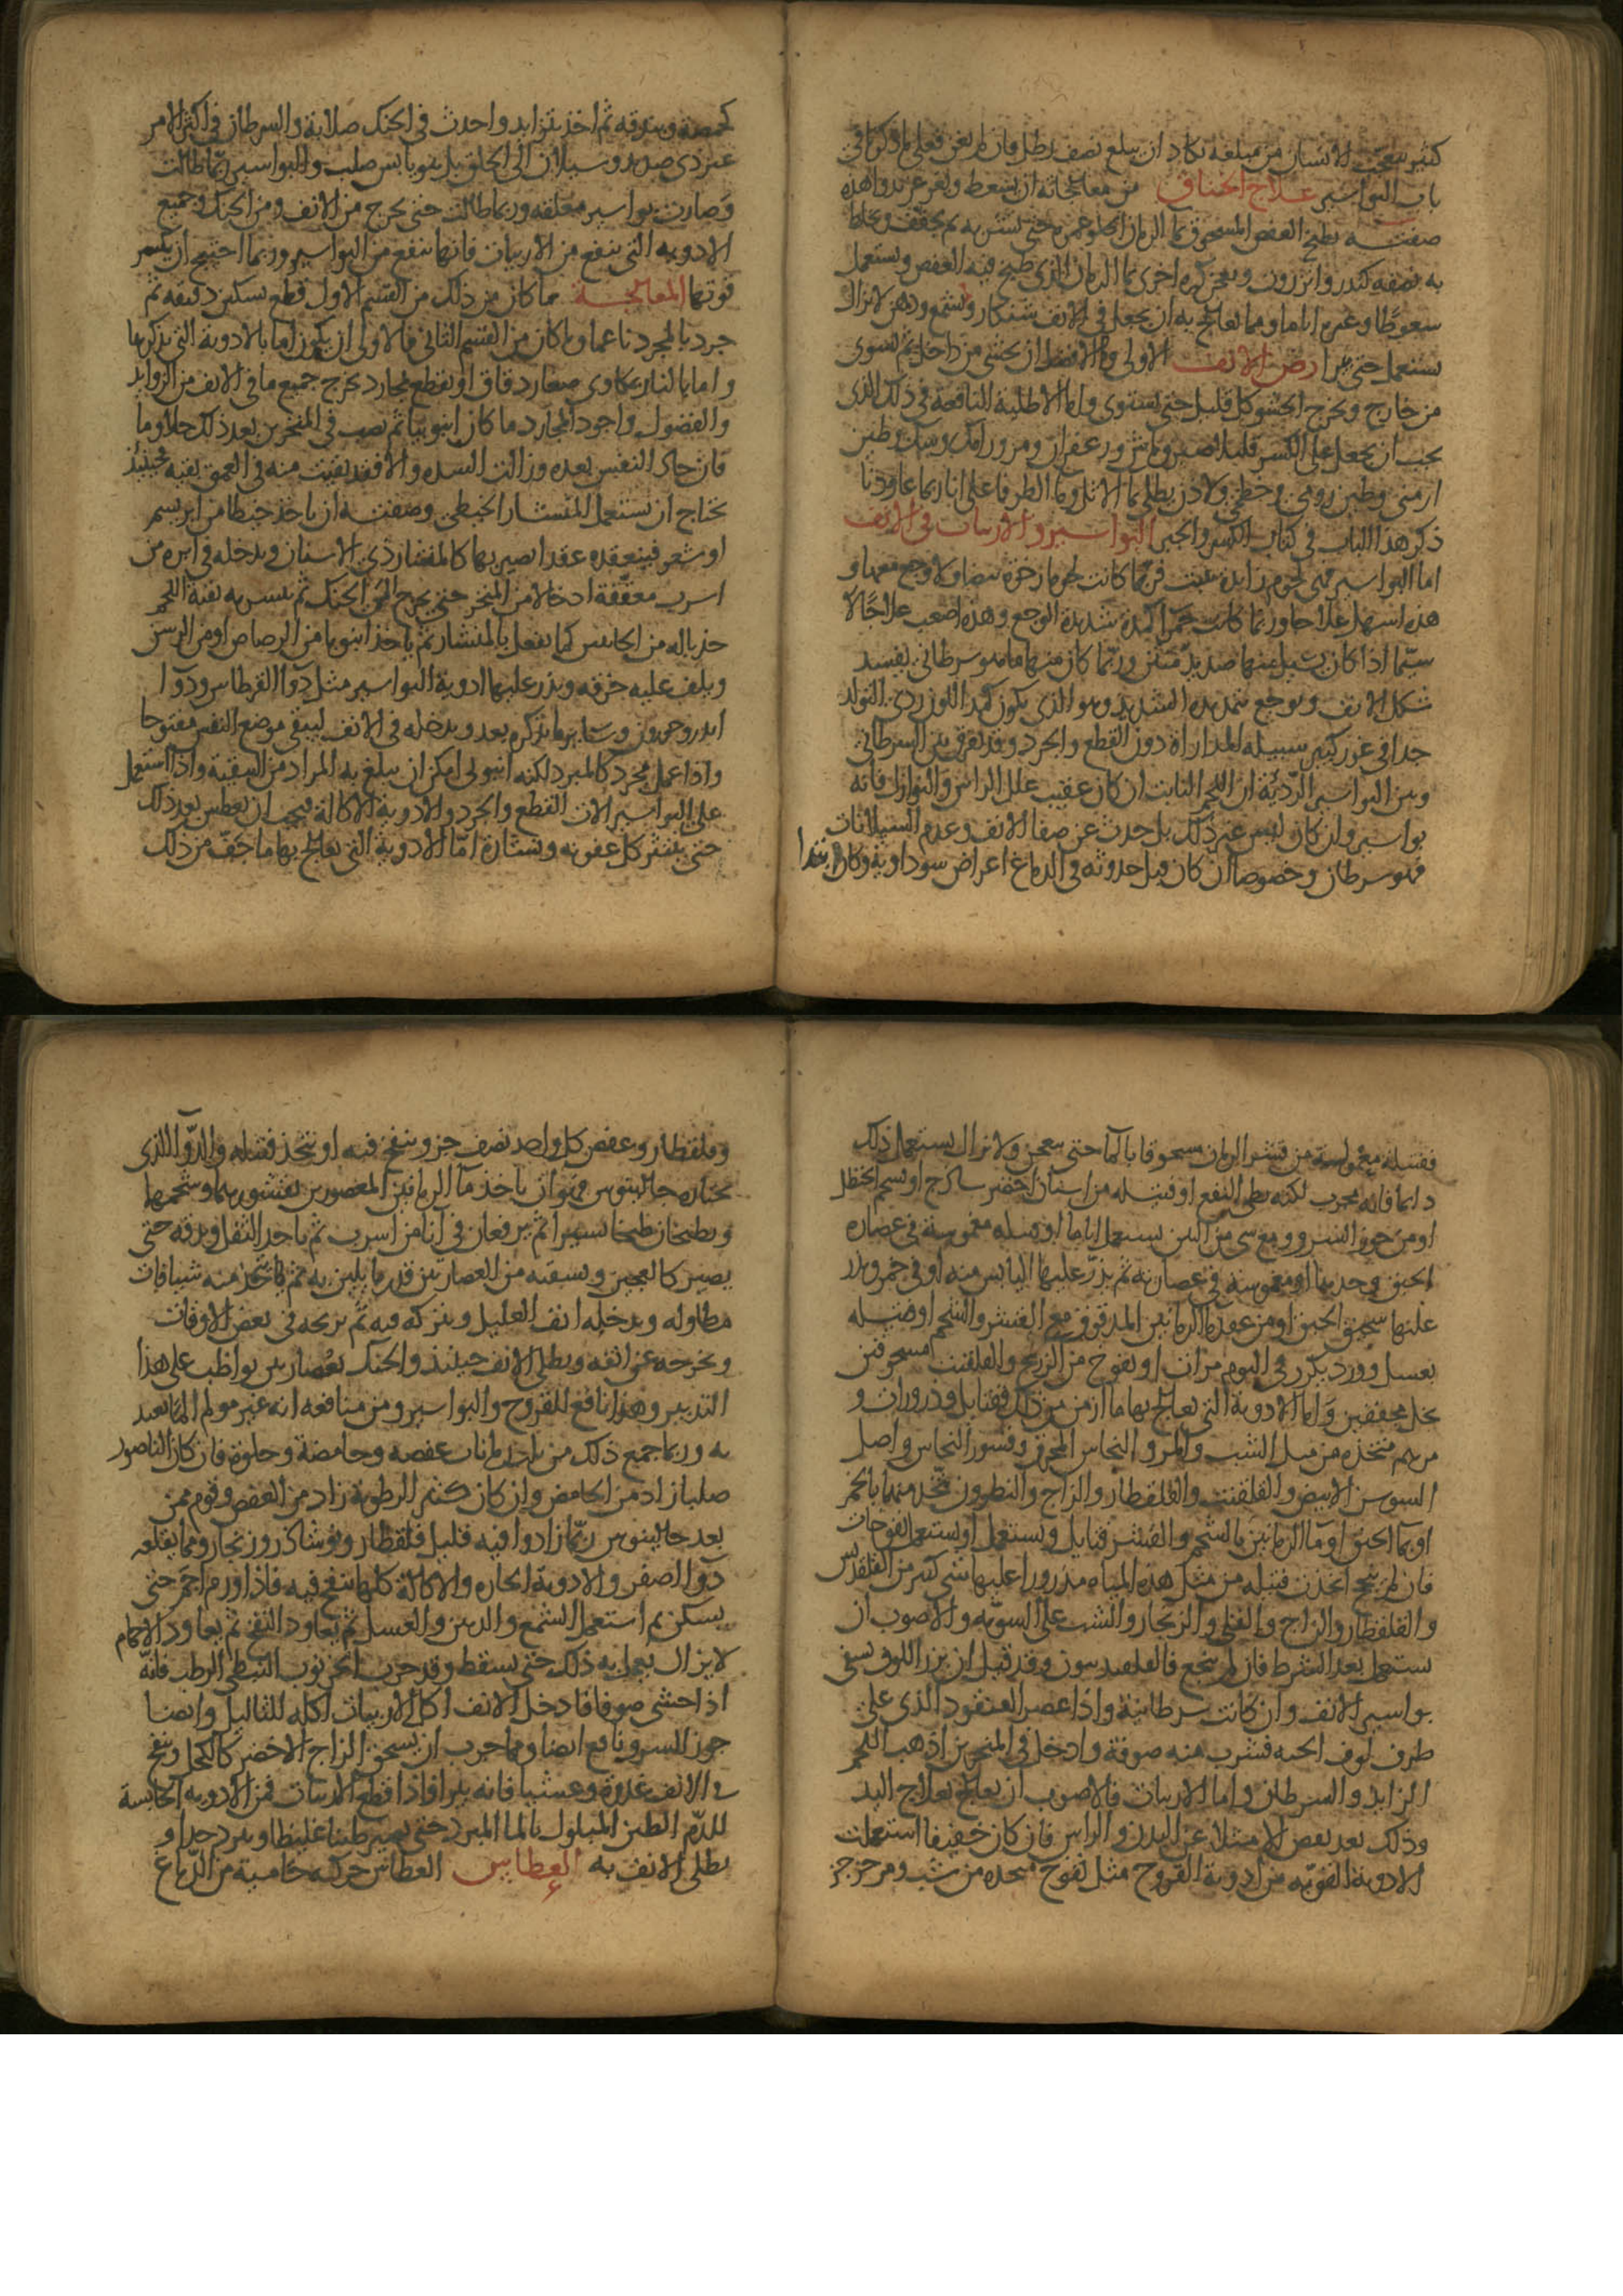 كثير يتعجب الانسان من مبلغه يكاد ان يبلغ نصف رطل فان لم يغن فعلى ما ذكرنا في
باب البواسير علاج الخناق من معالجاته ان يسعط ويغرغر بدوا هذه
صفته يطبخ العفص المسحوق بما الرمان الحلو حتى يشربه ثم يجفف ويخلط
به نصفه كندر وانزروت ويعجن كرة اخرى بما الرمان الذي طبخ فيه العفص ويستعمل
سعوطا وغيره اياما ومما يعالج به ان يجعل في الانف شنكار وشمع ودهن لا يزال
يستعمل حتى يبرا رض الانف الاولى ان يحشى من داخل ثم يسوى
من خارج ويخرج الحشو كل قليل حتى يستوى واما الاطلية النافعة في ذلك الذي
يجب ان يجعل على الكسر فليكن صبر وماش وزعفران ومر وطين
ارمني وطين رومي وخطمي ولاذن يطلى بما الاثل وما الطرفا على انا ربما عاودنا
ذكر هذا الباب في كتاب الكسر والجبر البواسير والاربيان في الانف
اما البواسير فهي لحوم زايدة تنبت فربما كانت لحوما رخوة بيضا ولا وجع معها و
هذه اسهل علاجا وربما كانت حمرا كمدة شديدة الوجع وهذه اصعب علاجا لا
سيما اذا كان يسيل منها صديد منتن وربما كان منها ما هو سرطاني يفسد
شكل الانف ويوجع بتمديده الشديد وهو الذي يكون كمد اللون ردى التولد
جدا في غور كثير سبيله المداراة دون القطع والجرد وقد يفرق بين السرطاني
وبين البواسير الرديئة ان اللحم النابت ان كان عقيب علل الراس والنوازل فانه
بواسير وان كان ليس عن ذلك بل حدث عن صفا الانف وعدم السيلانات
فهو سرطان وخصوصا ان كان قبل حدوثه في الدماغ اعراض سوداوية وكان ابتدا
كحمصة وبندقة ثم اخذ يتزايد واحدث في الحنك صلابة والسرطان في اكثر الامر
غير ذي صديد وسيلان الى الحلق بل هو يابس صلب والبواسير ربما طالت
وصارت بواسير معلقة وربما طالت حتى تخرج من الانف ومن الحنك وجميع
الادوية التي تنفع من الاربيان فانها تنفع من البواسير وربما احتيج ان يكسر
قوتها المعالجة ما كان من ذلك من القسم الاول قطع بسكين دقيقه ثم
جرد بالمجرد ناعما وما كان من القسم الثاني فالاولى ان يكون اما بالادوية التي نذكرها
واما بالنار بمكاوى صغار دقاق او يقطع بمجارد تخرج جميع ما في الانف من الزوايد
والفضول واجود المجارد ما كان انبوبيا ثم يصب في المنخرين بعد ذلك خلا وما
فان جاد النفس بعده وزالت السده والا فقد بقيت منه في العمق بقية فحينئذ
يحتاج ان يستعمل المنشار الخيطي وصفته ان ياخذ خيطا من ابريسم
او شعر فيعقده عقدا يصير بها كالمنشار ذي الاسنان ويدخله في ابرة من
اسرب معقفة ادخالا من المنخر حتى يخرج الى الحنك ثم ينشر به بقية اللحم
جذبا له من الجانبين كما يفعل بالمنشار ثم ياخذ انبوبا من الرصاص او من الريش
ويلف عليه خرقه ويذر عليها ادوية البواسير مثل دوا القرطاس ودوا
اندروخورون وساير ما نذكره بعد ويدخله في الانف ليبقى موضع النفس مفتوحا
واذا عمل مجرد كالمبرد لكنه انبوبي امكن ان يبلغ به المراد من التنقية واذا استعمل
على البواسير الات القطع والجرد والادوية الاكالة فيجب ان يعطس بعد ذلك
حتى ينتثر كل عفونه ونشارة اما الادوية التي يعالج بها ما خف من ذلك
ففتيلة مغموسة من قشر الرمان مسحوقا بالما حتى ينعجن ولا يزال يستعمل ذلك
دايما فانه مجرب لكنه بطى النفع او فتيله من اشنان اخضر ساذج او شحم الحنظل
او من جوز السرو ومع شى من التين يستعمل اياما او فتيله مغموسة في عصاره
الحبق وحدها او مغموسة في عصارته ثم يذر عليها اليابس منه او في خمر ويذر
عليها سحيق الحبق او من عقيد ما الرمانين المدقوق مع القشر والشحم او فتيله
بعسل وورد يكرر في اليوم مرات او نفوخ من الزرنيخ والقلقنت مسحوقين
بخل مجففين واما الادوية التي يعالج بها ما ازمن من ذلك ففتايل وذرورات و
مرهم متخذه من مثل الشب والمر والنحاس المحرق وقشور النحاس واصل
السوسن الابيض والقلقنت والقلقطار والزاج والنطرون متخذ منها بالخمر
او بما الحبق او ما الرمانين بالشحم والقشر فتايل ويستعمل او يستعمل نفوخات
فان لم ينجع اتخذت فتيله من مثل هذه المياه مذرورا عليها شى كثير من القلقديس
والقلقطار والزاج والقلى والزنجار والشب على السويه والاصوب ان
يستعمل بعد الشرط فان لم ينجع فالقلقديون وقد قيل ان بزر اللوف يشفي
بواسير الانف وان كانت سرطانية واذا عصر العنقود الذي على
طرف لوف الحيه فشرب منه صوفة وادخل في المنخرين اذهب اللحم
الزايد والسرطان واما الاربيان فالاصوب ان يعالج بعلاج اليد
وذلك بعد نفض الامتلا عن البدن والراس فان كان خفيفا استعملت
الادوية القوية من ادوية القروح مثل نفوخ متخذه من شب ومر جز جز
وقلقطار وعفص كل واحد نصف جز وينفخ فيه او يتخذ فتيله والدوا الذي
يختاره جالينوس فهو ان ياخذ ما الرمانين المعصورين بقشورهما وشحمهما
ويطبخان طبخا يسيرا ثم يرفعان في انا من اسرب ثم ياخذ الثفل ويدقه حتى
يصير كالعجين ويسقيه من العصارتين قدر ما يلين به ثم ياخذ منه شيافات
مطاوله ويدخله انف العليل ويتركه فيه ثم يريحه في بعض الاوقات
ويخرجه عن انفه ويطلى الانف حينئذ والحنك بعصارتين يواظب على هذا
التدبير وهذا نافع للقروح والبواسير ومن منافعه انه غير مولم الما يعتد
به وربما جمع ذلك من ثلاث رمانات عفصه وحامضة وحلوة فان كان الناصور
صلبا زاد من الحامض وان كان كثير الرطوبة زاد من العفص وقوم ممن
بعد جالينوس ربما زادوا فيه قليل قلقطار ونوشاذر وزنجار ومما يقلعه
دوا الصفر والادوية الحاره والاكالة كلها ينفخ فيه فاذا ورم احمر حتى
يسكن ثم استعمل الشمع والدهن والعسل ثم يعاود النفخ ثم يعاود الاجمام
لا يزال يعمل به ذلك حتى يسقط وقد جرب الخرنوب النبطي الرطب فانه
اذا حشى صوفا فادخل الانف اكل الاربيان اكله للثاليل وايضا
جوز السرو نافع ايضا ومما جرب ان يسحق الزاج الاخضر كالكحل وينفخ
في الانف غدوة وعشيا فانه يبرا فاذا قطع الاربيان فمن الادوية الحابسة
للدم الطين المبلول بالما المبرد حتى يصير طينا غليظا ويبرد جدا و
يطلى الانف به العطاس العطاس حركه حامية من الدماغ